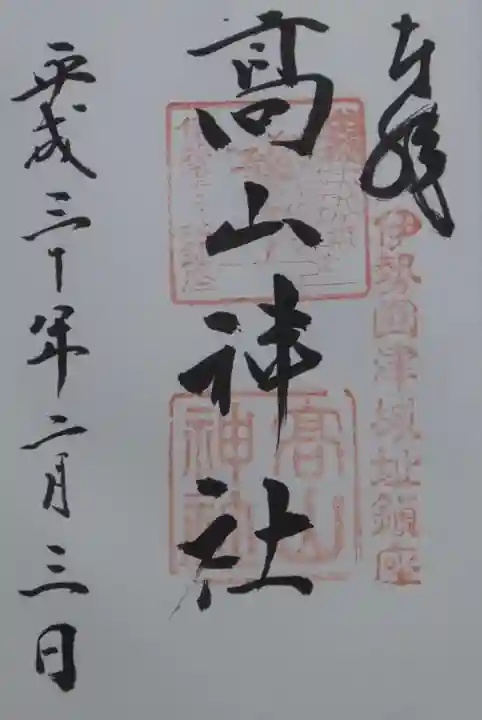 奉拝
伊勢國津城址鎮座
高山神社
高山神社
平成三十年二月三日